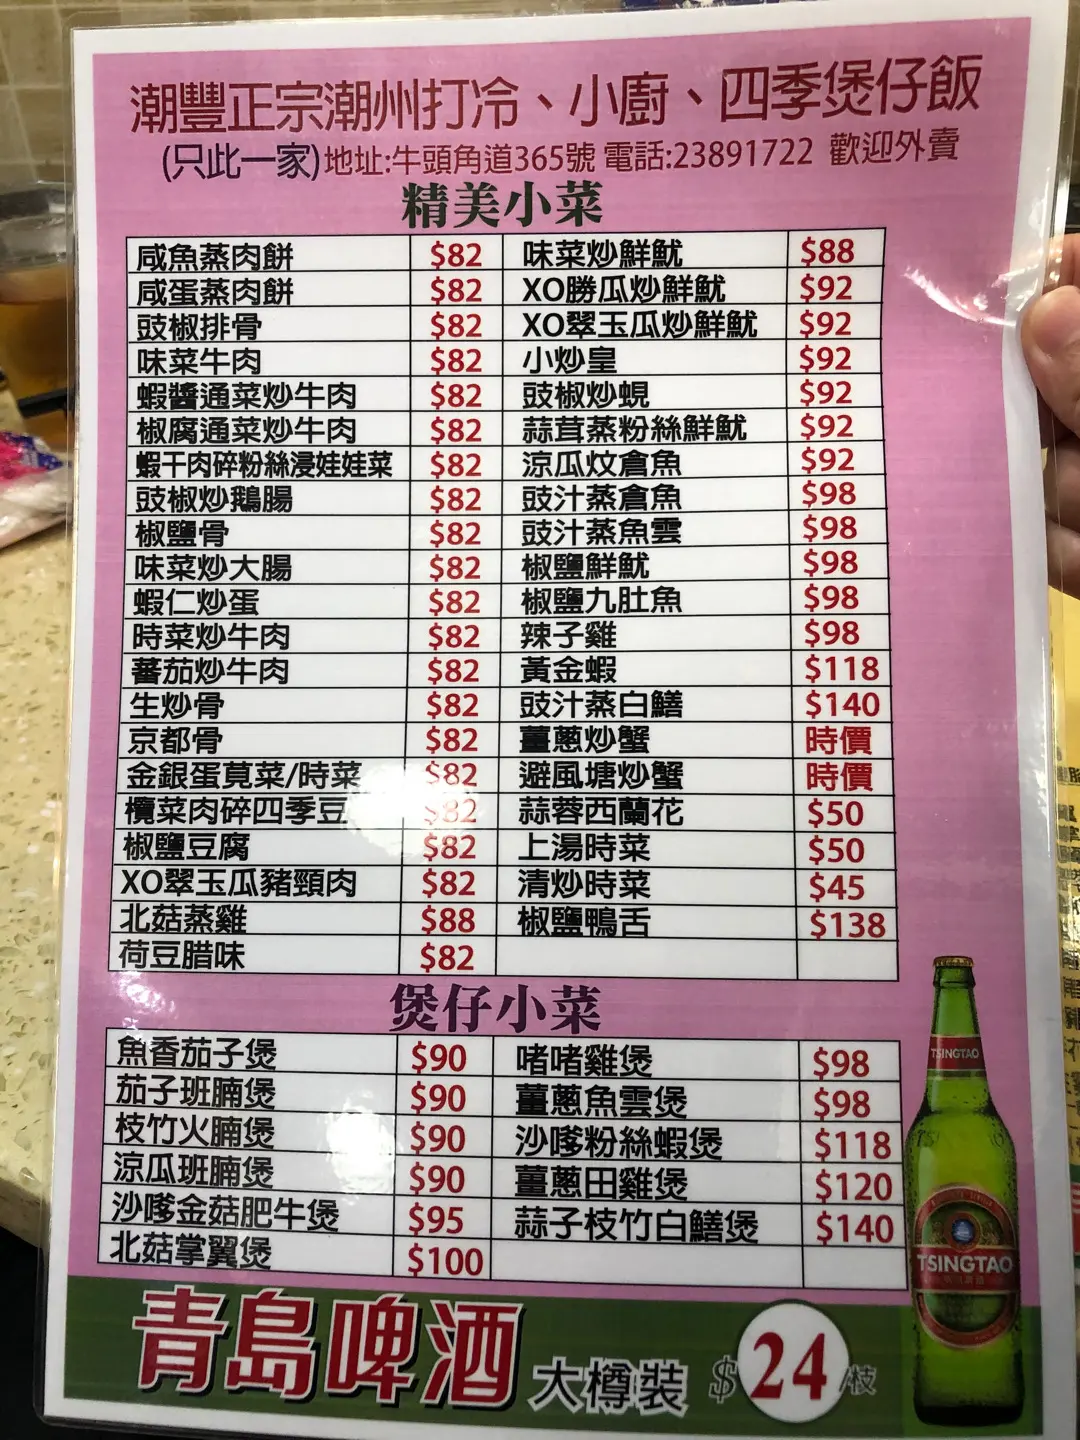 潮豐正宗潮州打冷、小廚、四季煲仔飯
(只此一家)地址:牛頭角道365號 電話:23891722 歡迎外賣
精美小菜
咸魚蒸肉餅 $82 味菜炒鮮魷 $88
咸蛋蒸肉餅 $82 XO勝瓜炒鮮魷 $92
豉椒排骨 $82 XO翠玉瓜炒鮮魷 $92
味菜牛肉 $82 小炒皇 $92
蝦醬通菜炒牛肉 $82 豉椒炒蜆 $92
椒腐通菜炒牛肉 $82 蒜茸蒸粉絲鮮魷 $92
蝦干肉碎粉絲浸娃娃菜 $82 涼瓜炆倉魚 $92
豉椒炒鵝腸 $82 豉汁蒸倉魚 $98
椒鹽骨 $82 豉汁蒸魚雲 $98
味菜炒大腸 $82 椒鹽鮮魷 $98
蝦仁炒蛋 $82 椒鹽九肚魚 $98
時菜炒牛肉 $82 辣子雞 $98
蕃茄炒牛肉 $82 黃金蝦 $118
生炒骨 $82 豉汁蒸白鱔 $140
京都骨 $82 薑蔥炒蟹 時價
金銀蛋莧菜/時菜 $82 避風塘炒蟹 時價
欖菜肉碎四季豆 $82 蒜蓉西蘭花 $50
椒鹽豆腐 $82 上湯時菜 $50
XO翠玉瓜豬頸肉 $82 清炒時菜 $45
北菇蒸雞 $88 椒鹽鴨舌 $138
荷豆腊味 $82
煲仔小菜
魚香茄子煲 $90 啫啫雞煲 $98
茄子班腩煲 $90 薑蔥魚雲煲 $98
枝竹火腩煲 $90 沙嗲粉絲蝦煲 $118
涼瓜班腩煲 $90 薑蔥田雞煲 $120
沙嗲金菇肥牛煲 $95 蒜子枝竹白鱔煲 $140
北菇掌翼煲 $100
TSINGTAO
TSINGTAO
青島啤酒 大樽裝 $24/枝